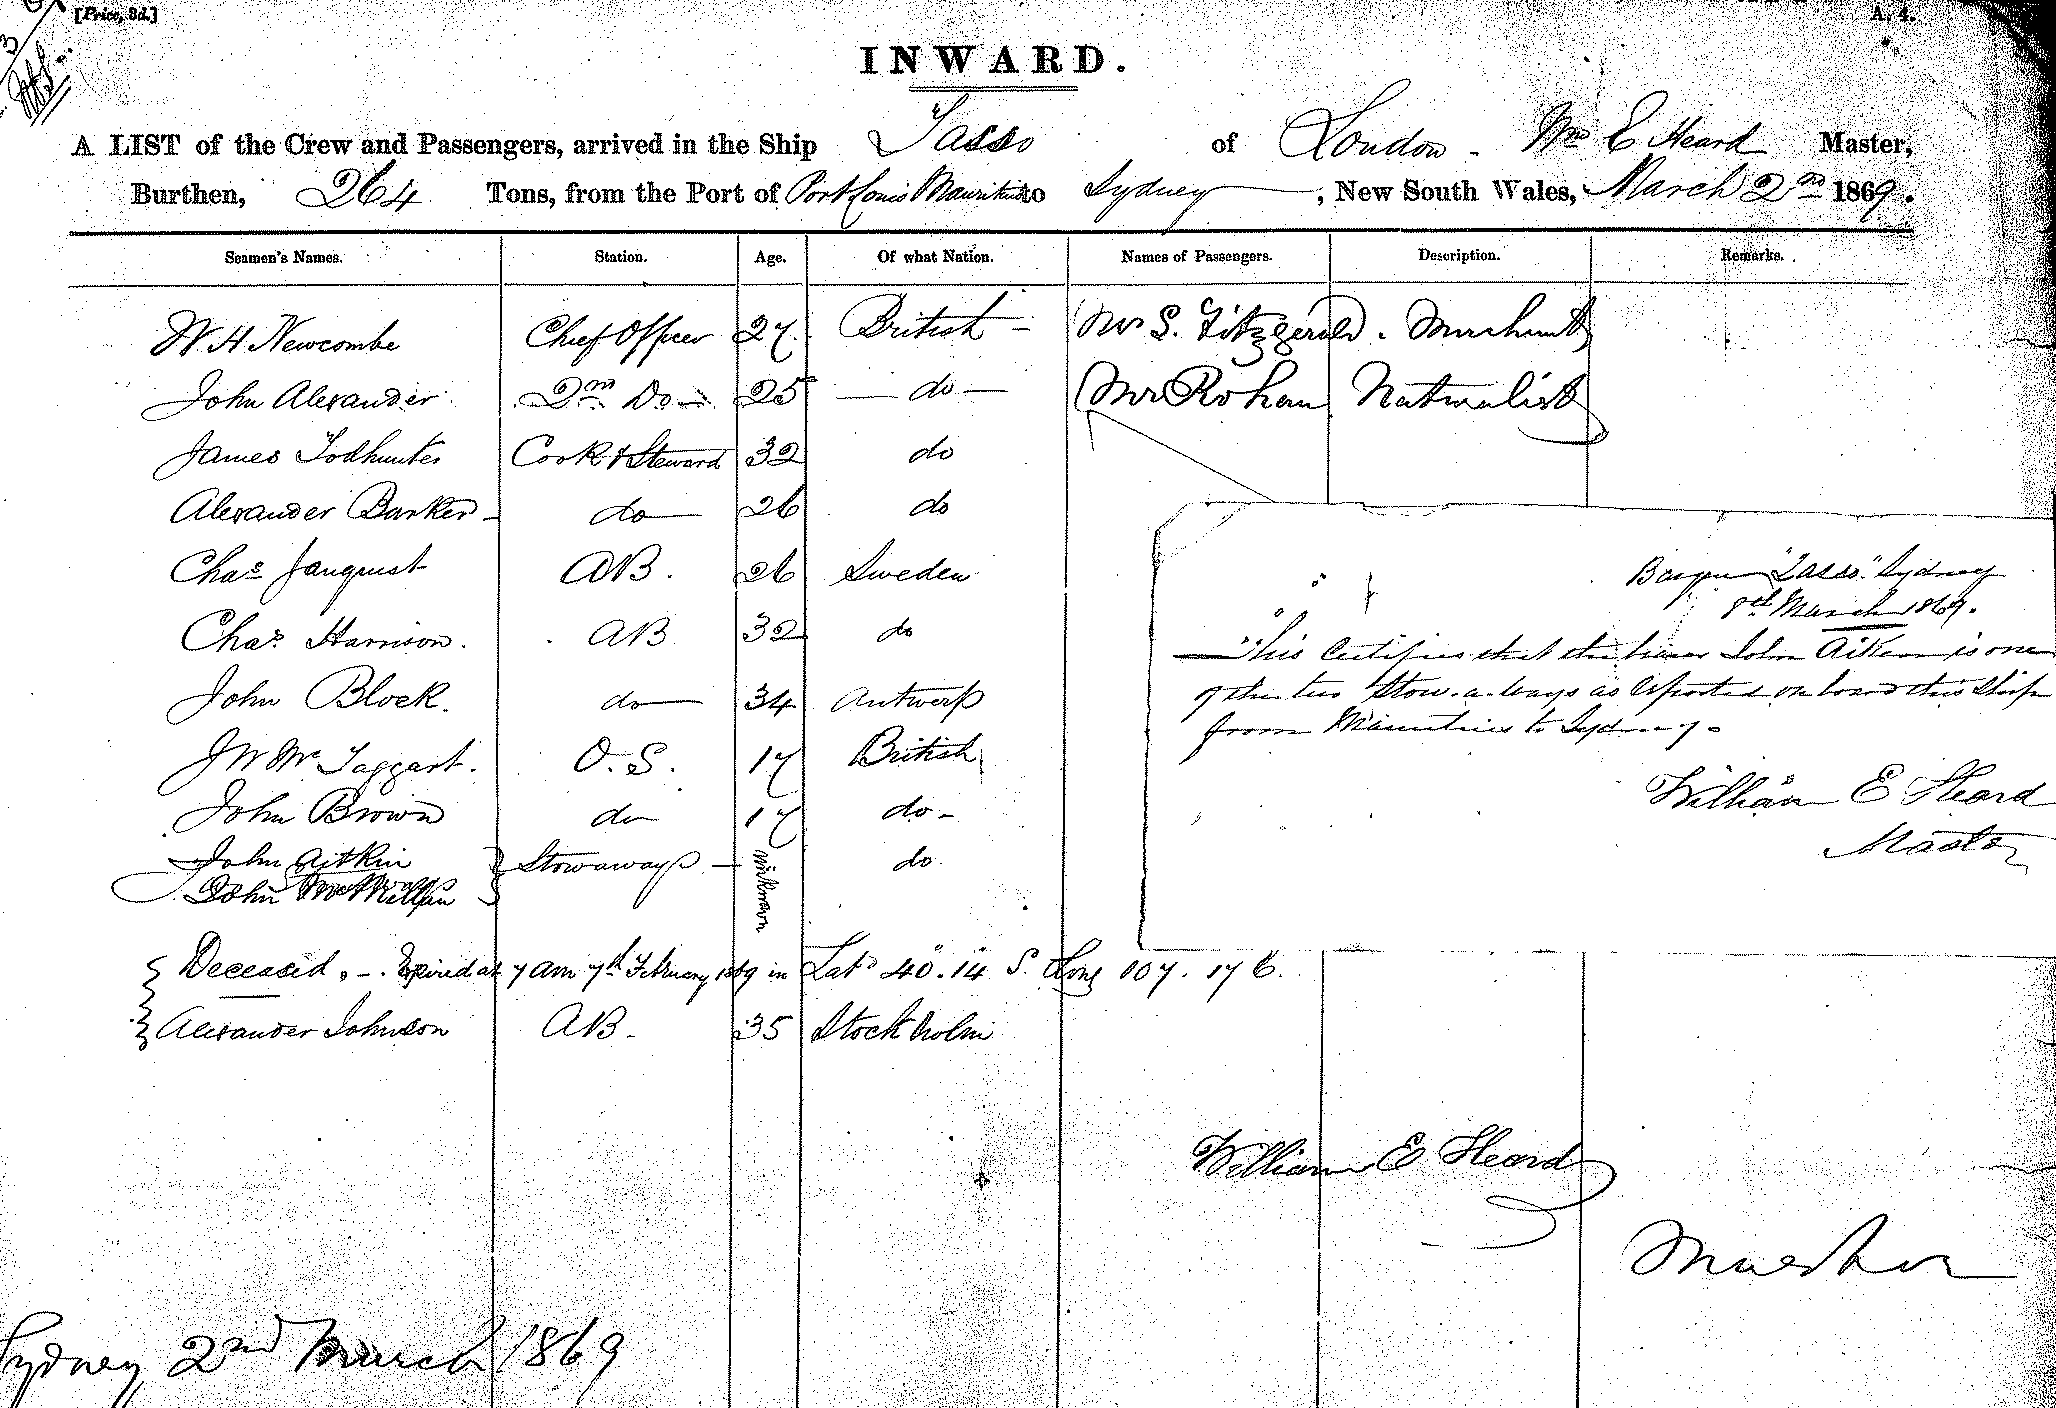 [Price, 3d.]
A. 4.
INWARD.
A LIST of the Crew and Passengers, arrived in the Ship Tasso of London - Wm E Heard Master,
Burthen, 264 Tons, from the Port of Port Louis Mauritius to Sydney, New South Wales, March 2nd 1869.
Seamen's Names. Station. Age. Of what Nation. Names of Passengers. Description. Remarks.
W. H Newcombe Chief Officer 27 British - Mr S. Fitzgerald. Merchant
John Alexander 2nd Do 25 - do - Mr Rohan Naturalist
James Todhunter Cook & Steward 32 do
Alexander Barker - do 26 do
Chas Janquist AB. 26 Sweden
Chas Harrison. AB 32 do
John Block. do 34 Antwerp
J W Mc Taggart. O. S. 17 British
John Brown do 17 do -
John Aitkin } Stowaways - unknown do
John McMillan
Deceased. - Expired at 7 am 7th February 1869 in Latd 40.14 S. Long 107.17 E.
Alexander Johnson AB. 35 Stockholm
Barque "Tasso" Sydney
8th March 1869.
This Certifies that the bearer John Aitken is one
of the two Stow-a-ways as reported on board this Ship
from Mauritius to Sydney -
William E Heard
Master
William E Heard
Master
Sydney 2nd March 1869